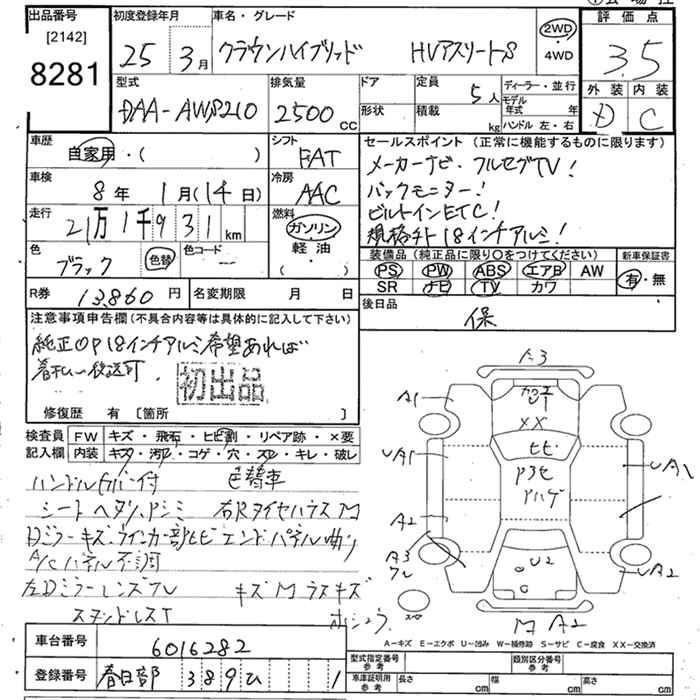 出品番号 初度登録年月 車名・グレード 評価点
[2142]
8281
25年 3月 クラウンハイブリッド HVアスリートS 2WD・4WD 3.5
型式 排気量 ドア 定員 ディーラー・並行 外装 内装
DAA-AWS210 2500cc 5人 モデル年式 年 D C
形状 積載 kg ハンドル 左・右
車歴 シフト セールスポイント (正常に機能するものに限ります)
自家用・( ) FAT メーカーナビ・フルセグTV!
車検 冷房 バックモニター!
8年 1月(14日) AAC ビルトインETC!
走行 燃料 規格外18インチアルミ!
21万1千931km ガソリン・軽油・( )
色 色替 色コード 装備品(純正品に限り○をつけてください) 新車保証書
ブラック PS PW ABS エアB AW 有・無
SR ナビ TV カワ
R券 13,860円 名変期限 月 日 後日品
保
注意事項申告欄(不具合内容等は具体的に記入して下さい)
純正OP18インチアルミ希望あれば
着払い発送可.
初出品
修復歴 有 [箇所 ]
検査員 FW キズ・飛石・ヒビ割・リペア跡・×要
記入欄 内装 キズ・汚レ・コゲ・穴・スレ・キレ・破レ
ハンドルカバー付 色替車
シートヘタリ、シミ 右Rタイヤハウス M
Dミラーキズ ウインカー部ヒビ エンドパネル曲り
A/Cパネル不調
左Dミラーレンズワレ キズMラスキズ
A3
A1
カコエ
XX
ヒビ
UA1
UA1
アハゲ
A2
A3
ワレ
U2
UA2
スペ
M A2
A-キズ E-エクボ U-凹み W-補修跡 S-サビ C-腐食 XX-交換済
車台番号 6016282
登録番号 春日部 389 ひ 1
型式指定番号 参考 類別区分番号 参考
車庫証明用 参考 長さ cm 幅 cm 高さ cm